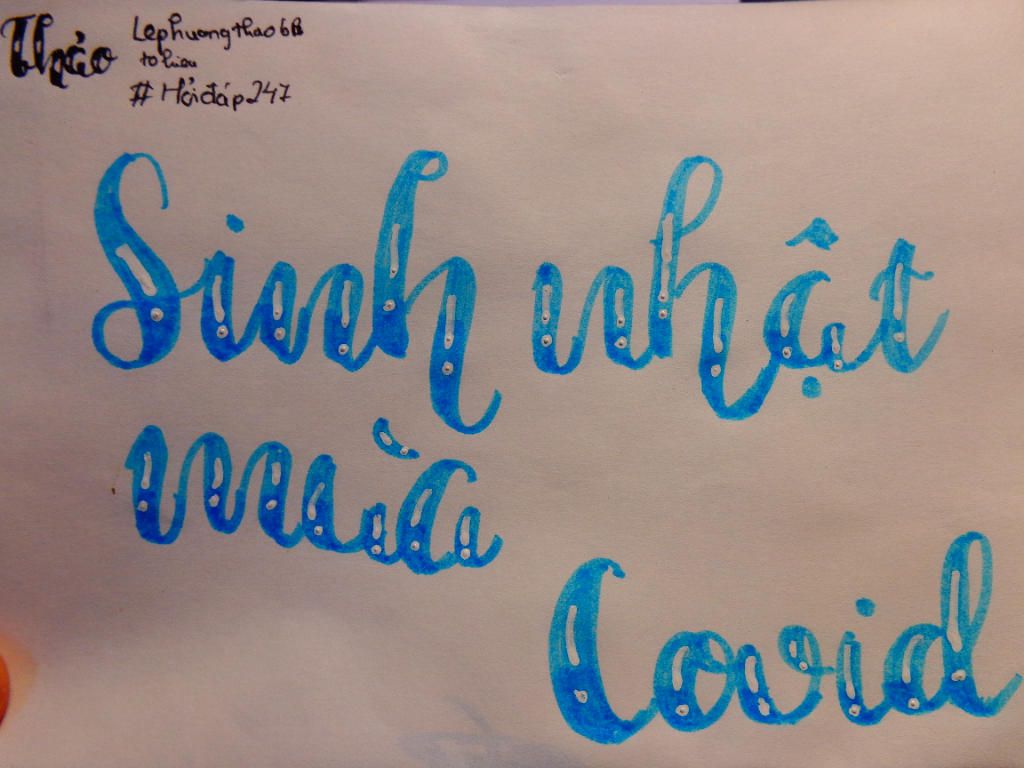 Thảo
Lephuongthao6B
to hieu
#Hỏiđáp247
Sinh nhật
mùa
Covid